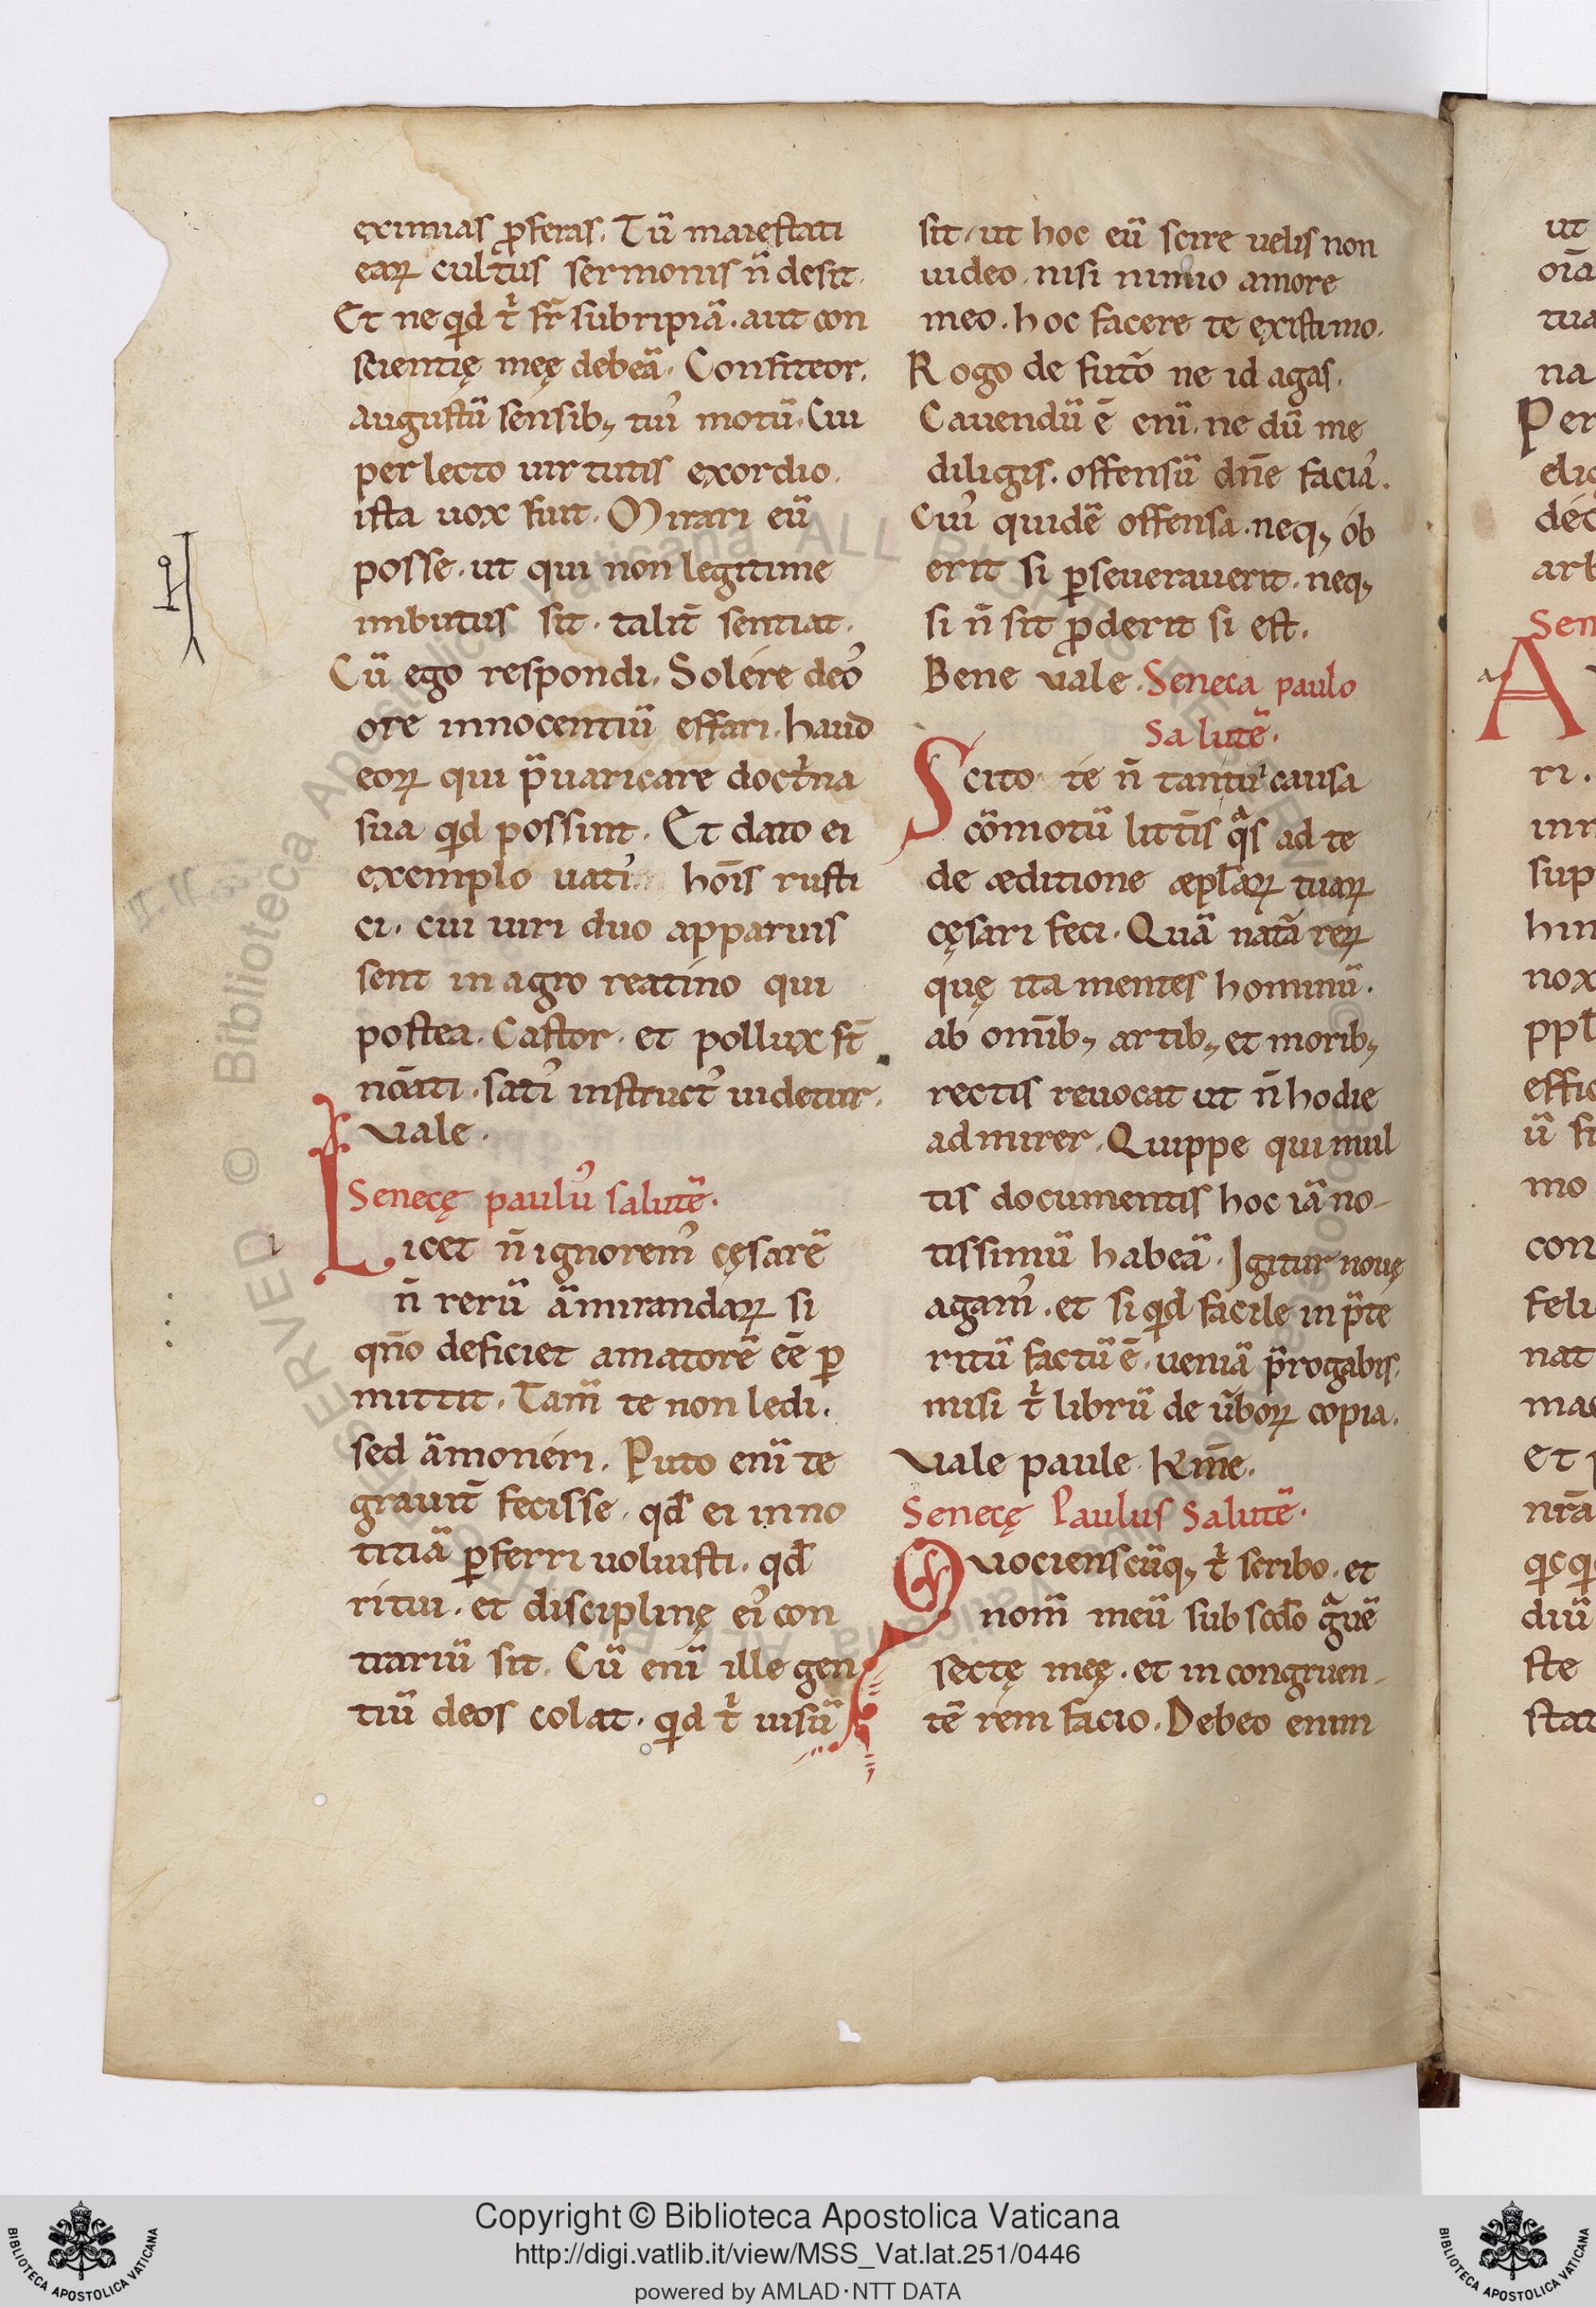 exımıas ꝓferas. Tū maıestati
eaꝝ cultus sermonıs n̄ desit.
Et ne qd t̄ fr̄ subripiā. aut con
scientię męę debeā. Confiteor.
augustū sensib; tuıˀ motū. Cui
perlecto uirtutis exordio.
ista uox fuit. Mirari eū
posse. ut qui non legitime
imbutus sit. talit̄ sentiat.
Cū ego respondi. Solere deoˀ
ore innocentiū effari. haud
eoꝝ qui p̄uaricare doctⁱna
sua qd possint. Et dato ei
exemplo uatiˀ hoīs rusti
ci. cui uiri duo apparuis
sent in agro reatino qui
postea. Castor. et pollux st̄
noāti. satiˀ instructˀ uidetur.
Vale.
Senecę pauluˀ salutē.
Licet n̄ ignoremˀ cęsarē
n̄ rerū āmirandaꝝ si
qn̄o deficiet amatorē eē ꝑ
mittit. Tam̄ te non ledi.
sed āmoneri. Puto enī te
grauit̄ fecisse. qđ ei in no
titiā ꝑferri uoluisti. qđ
ritui. et disciplinę eiˀ con
trariū sit. Cū enī ille gen
tiū deos colat. qd t̄ uisū
sit. ut hoc eū scire uelis non
uideo. nisi nimio amore
meo. hoc facere te existimo.
Rogo de futō ne id agas.
Cauendū ē enī. ne dū me
diligis. offensū dn̄e faciaˀ.
Cuiˀ quidē offensa. neq; ob
erit si ꝑseuerauerit. neq;
si n̄ sit ꝓderit si est.
Bene uale. Seneca paulo
Salutē.
Scito te n̄ tantū causa
cōmotū litt̄is qͣs ad te
de æditione æpl̄aꝝ tuaꝝ
cęsari feci. Quā natā reꝝ
quę ita mentes hominū.
ab omīb; artib; et morib;
rectis reuocat ut n̄ hodie
admirer. Quippe qui mul
tis documentis hoc iā no-
tissimū habeā. Igitur nouę
agamˀ. et si qd facile in p̄te
ritū factū ē. ueniā p̄rogabis.
misi t̄ librū de ūboꝝ copia.
Vale paule Km̄e.
Senecę Paulus Salutē.
Quocienscūq; t̄ scribo. et
nom̄ meū sub scđo gͣuē
sectę męę. et in congruen-
tē rem facio. Debeo enim
ut
oīa
tua
na
Per
dec
Sen
A
ri.
inn
sup
hin
nox
ppl̄
effic
ū
mo
con
feli
nat
mae
et
nr̄a
qcq
diū
ste
stat
Copyright © Biblioteca Apostolica Vaticana
http://digi.vatlib.it/view/MSS_Vat.lat.251/0446
powered by AMLAD·NTT DATA